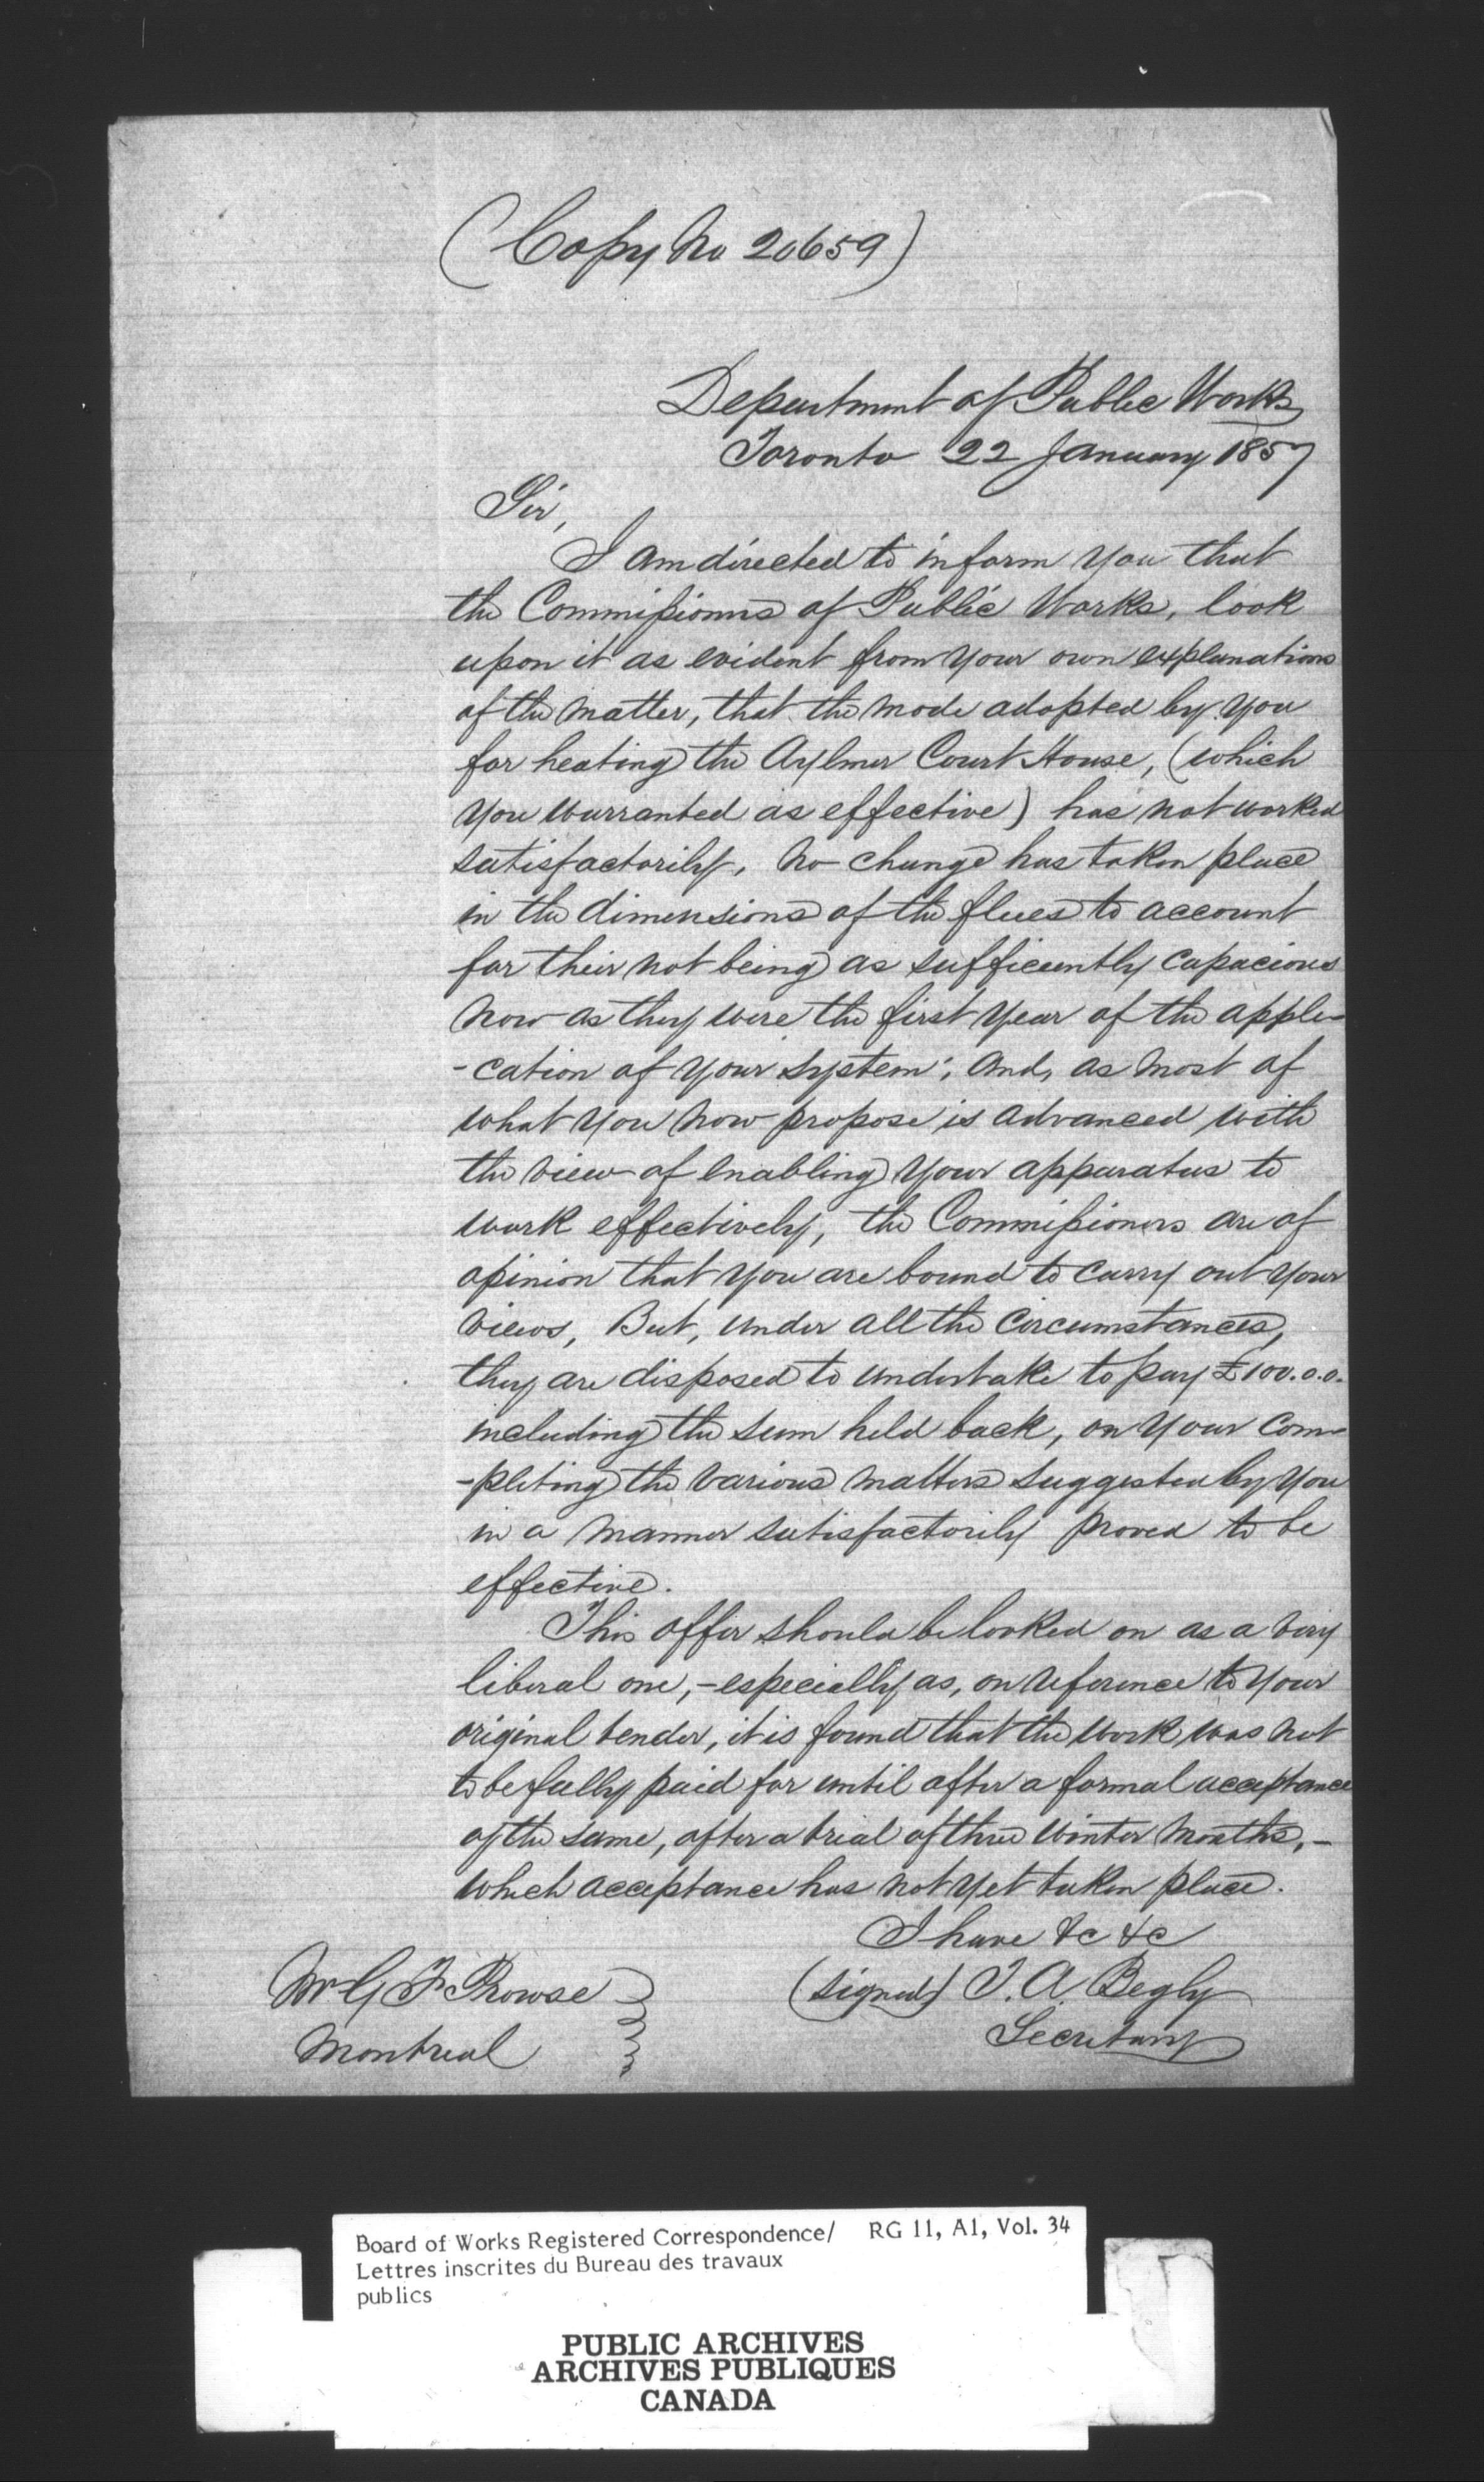 (Copy No 20659)
Department of Public Works
Toronto 22 January 1857
Sir,
I am directed to inform you that
the Commissioners of Public Works, look
upon it as evident from your own explanations
of the matter, that the mode adopted by you
for heating the Aylmer Court House, (which
you warranted as effective) has not worked
satisfactorily, no change has taken place
in the dimensions of the flues to account
for their not being as sufficiently capacious
now as they were the first year of the appli-
-cation of your system; and, as most of
what you now propose is advanced with
the view of enabling your apparatus to
work effectively, the Commissioners are of
opinion that you are bound to carry out your
views, But, under all the circumstances,
they are disposed to undertake to pay £100.0.0.
including the sum held back, on your com-
-pleting the various matters suggested by you
in a manner satisfactorily proved to be
effective.
This offer should be looked on as a very
liberal one,-especially as, on reference to your
original tender, it is found that the work was not
to be fully paid for until after a formal acceptance
of the same, after a trial of three Winter Months,-
which acceptance has not yet taken place.
I have &c &c
(signed) T. A. Begly
Secretary
Mr G F Prowse
Montreal
Board of Works Registered Correspondence/ RG 11, A1, Vol. 34
Lettres inscrites du Bureau des travaux
publics
PUBLIC ARCHIVES
ARCHIVES PUBLIQUES
CANADA